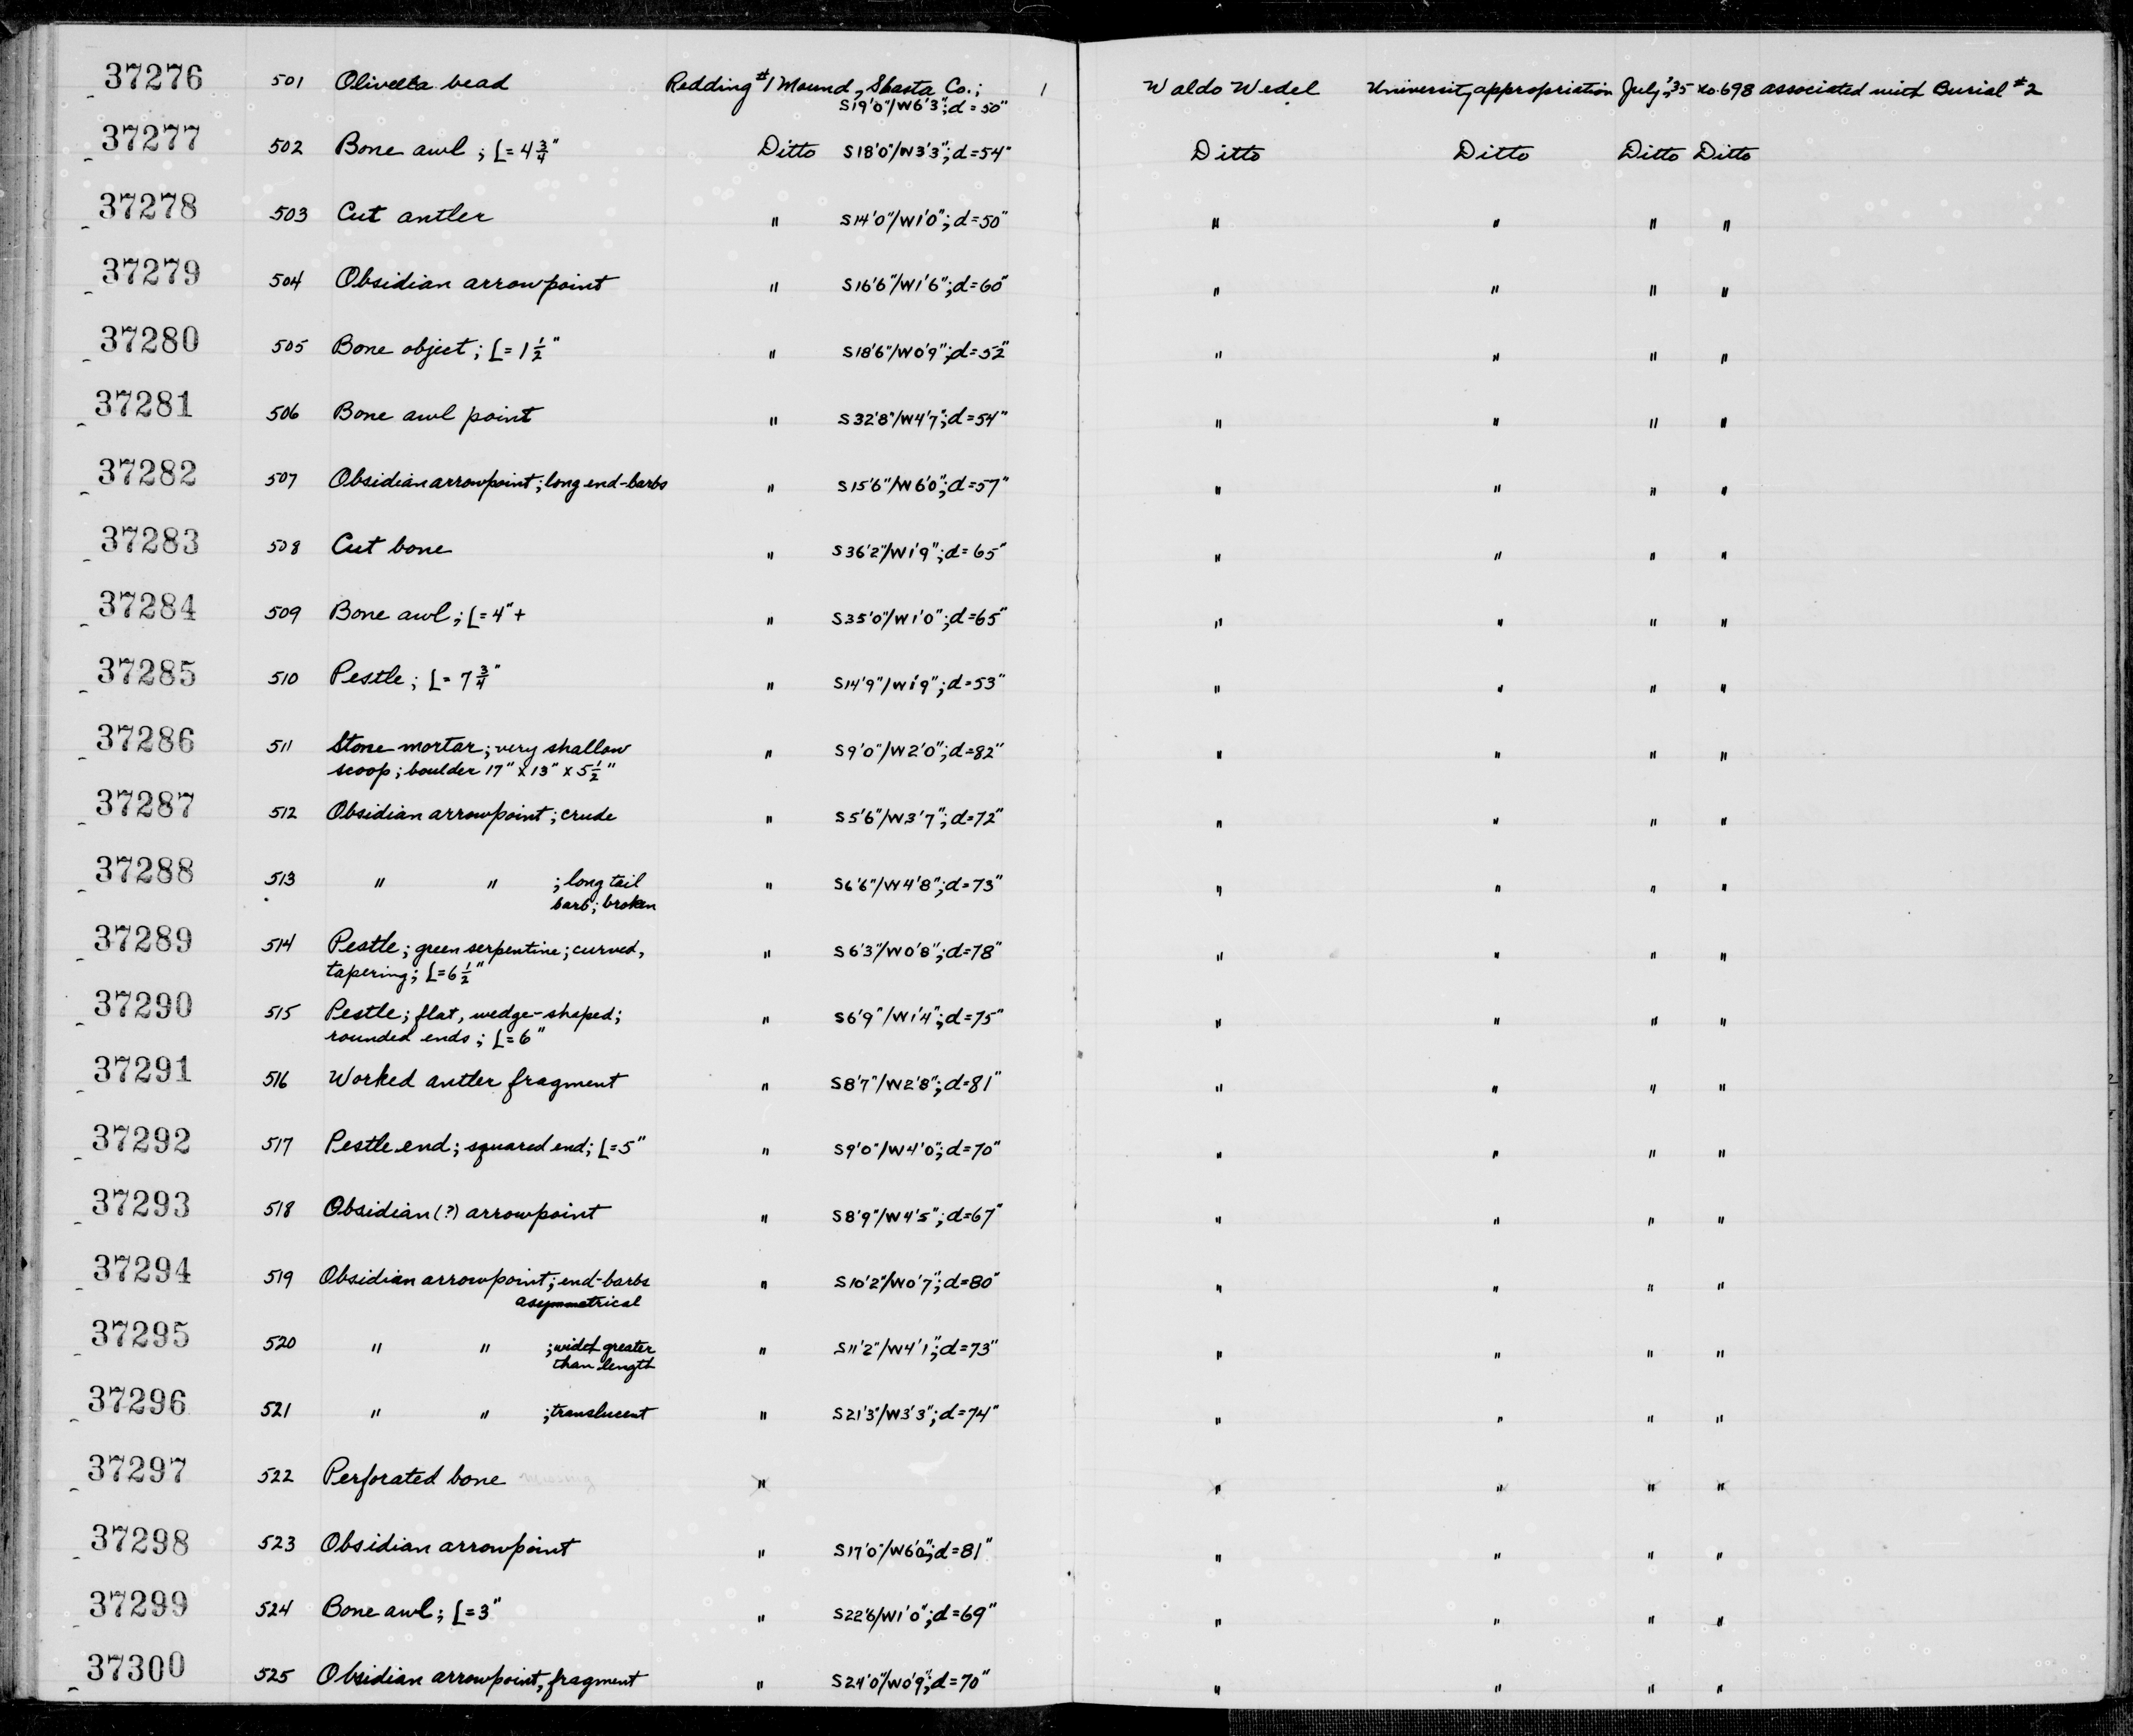 37276 501 Olivella bead Redding #1 Mound, Shasta Co.; 1 Waldo Wedel University appropriation July, '35 No. 698 associated with Burial #2
S19'0"/W6'3"; d=50"
37277 502 Bone awl; L=4 3/4" Ditto S18'0"/W3'3"; d=54" Ditto Ditto Ditto Ditto
37278 503 Cut antler " S14'0"/W1'0"; d=50" " " " "
37279 504 Obsidian arrowpoint " S16'6"/W1'6"; d=60" " " " "
37280 505 Bone object; L=1 1/2" " S18'6"/W0'9"; d=52" " " " "
37281 506 Bone awl point " S32'8"/W4'7"; d=54" " " " "
37282 507 Obsidian arrowpoint; long end-barbs " S15'6"/W6'0"; d=57" " " " "
37283 508 Cut bone " S36'2"/W1'9"; d=65" " " " "
37284 509 Bone awl; L=4"+ " S35'0"/W1'0"; d=65" " " " "
37285 510 Pestle; L=7 3/4" " S14'9"/W1'9"; d=53" " " " "
37286 511 Stone mortar; very shallow " S9'0"/W2'0"; d=82" " " " "
scoop; boulder 17" x 13" x 5 1/2"
37287 512 Obsidian arrowpoint; crude " S5'6"/W3'7"; d=72" " " " "
37288 513 " " ; long tail " S6'6"/W4'8"; d=73" " " " "
barb; broken
37289 514 Pestle; green serpentine; curved, " S6'3"/W0'8"; d=78" " " " "
tapering; L=6 1/2"
37290 515 Pestle; flat, wedge-shaped; " S6'9"/W1'4"; d=75" " " " "
rounded ends; L=6"
37291 516 Worked antler fragment " S8'7"/W2'8"; d=81" " " " "
37292 517 Pestle end; squared end; L=5" " S9'0"/W4'0"; d=70" " " " "
37293 518 Obsidian (?) arrowpoint " S8'9"/W4'5"; d=67" " " " "
37294 519 Obsidian arrowpoint; end-barbs " S10'2"/W0'7"; d=80" " " " "
asymmetrical
37295 520 " " ; widht greater " S11'2"/W4'1"; d=73" " " " "
than length
37296 521 " " ; translucent " S21'3"/W3'3"; d=74" " " " "
37297 522 Perforated bone " " " " "
37298 523 Obsidian arrowpoint " S17'0"/W6'0"; d=81" " " " "
37299 524 Bone awl; L=3" " S22'6/W1'0"; d=69" " " " "
37300 525 Obsidian arrowpoint, fragment " S24'0"/W0'9"; d=70" " " " "